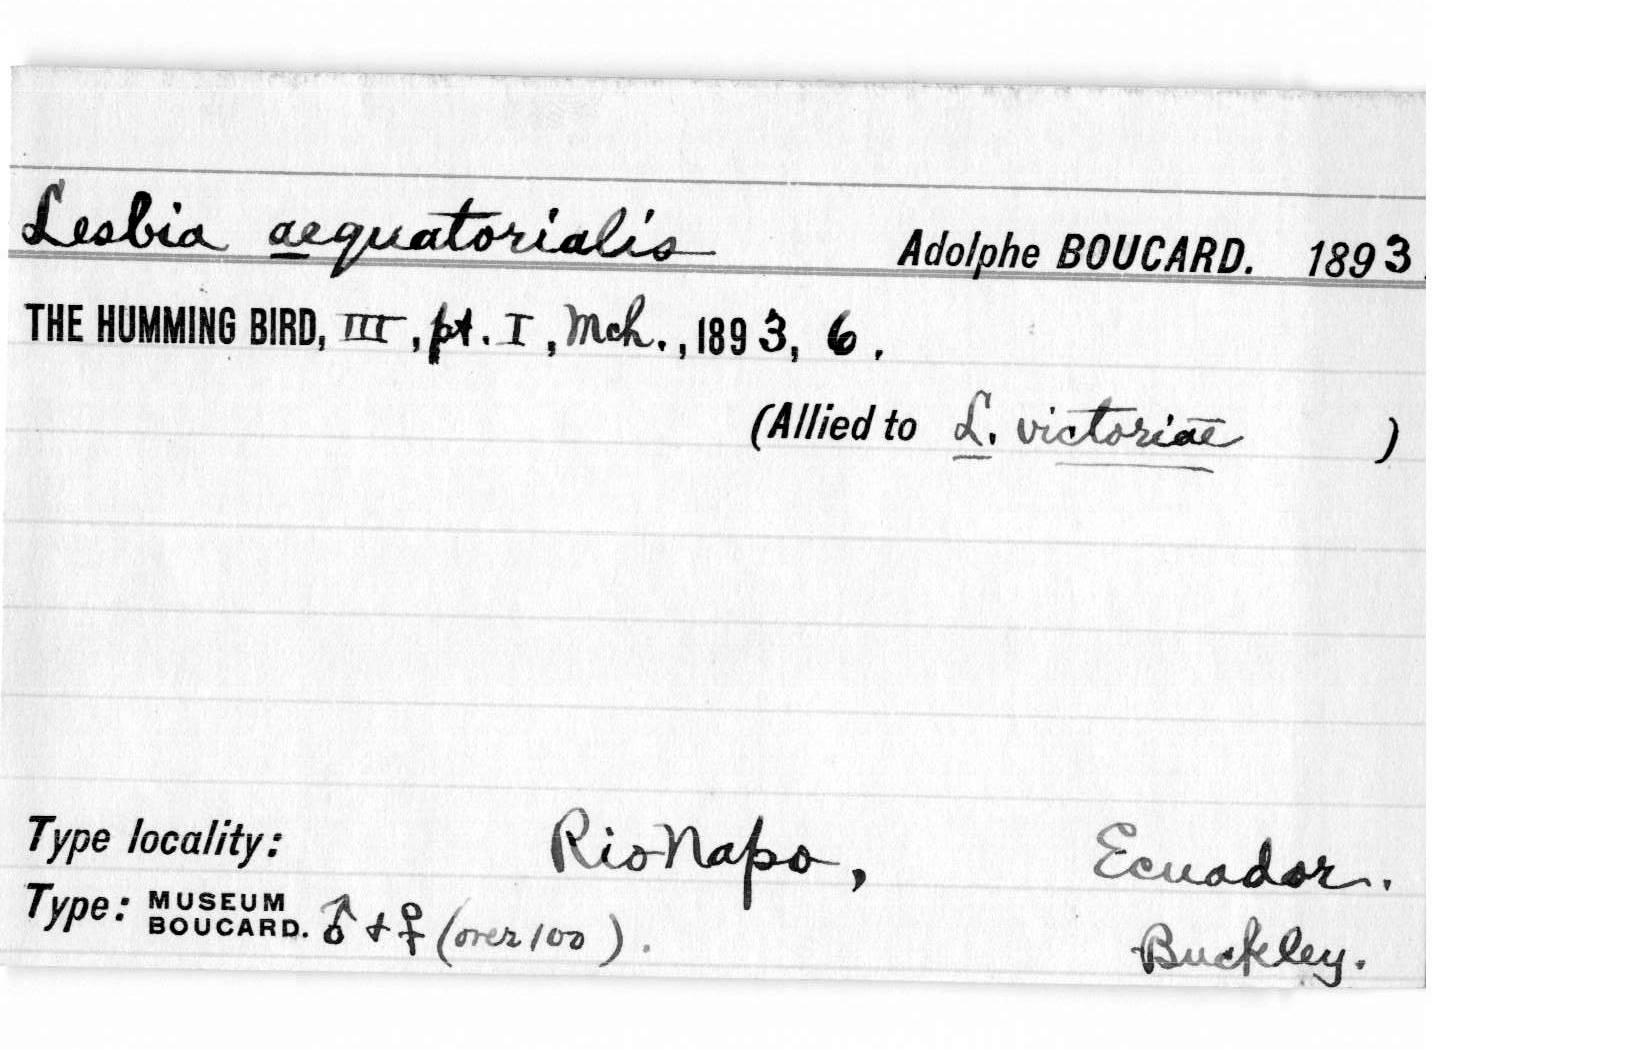 Lesbia aequatorialis Adolphe BOUCARD. 1893.
THE HUMMING BIRD, III, pt. I, Mch., 1893, 6.
(Allied to L. victoriae )
Type locality: Rio Napo, Ecuador.
Type: MUSEUM BOUCARD. ♂ + ♀ (over 100). Buckley.